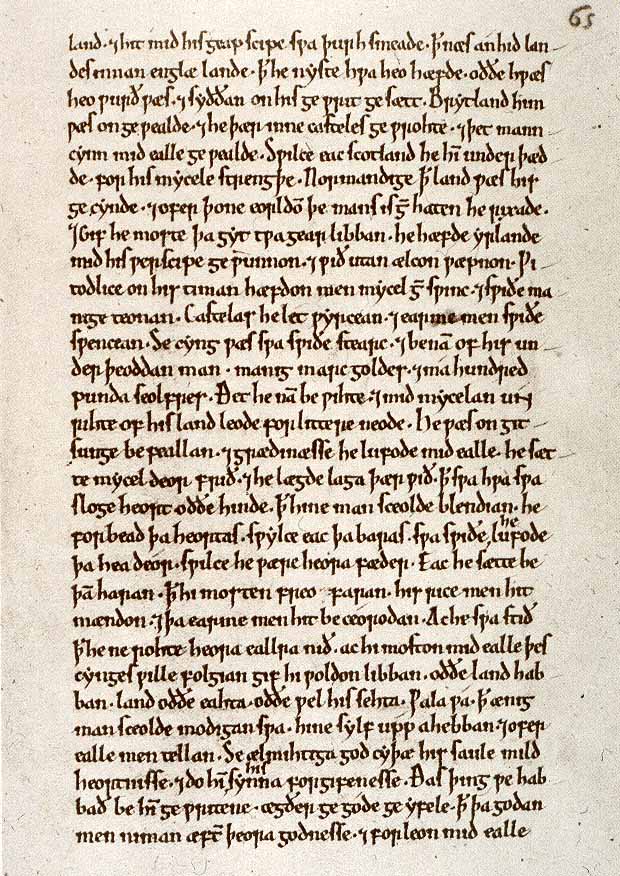 65
land. ⁊ hit mid his geapscipe sƿa þurh smeade. ꝥ næs an hid lan
des innan englæ lande. ꝥ he nyste hƿa heo hæfde. oððe hƿæs
heo ƿurð ƿæs. ⁊ syððan on his ge ƿrit ge sætt. Brytland him
ƿæs on ge ƿealde. ⁊ he þær inne casteles ge ƿrohte. ⁊ þet mann
cynn mid ealle ge ƿealde. Sƿilce eac scotland he hī under þæd
de. for his mycele strengþe. Normandige ꝥ land ƿæs his
ge cynde. ⁊ ofer þone eorldō þe mans is gꝫ haten he rixade.
⁊ Gif he moste þa gyt tƿa gear libban. he hæfde yrlande
mid his ƿerscipe ge ƿunnon. ⁊ ƿið utan ælcon ƿæpnon. Ƿi
todlice on his timan hæfdon men mycel gꝫ sƿinc. ⁊ sƿiðe ma
nige teonan. Castelas he let ƿyrcean. ⁊ earme men sƿiðe
sƿencean. Se cyng ƿæs sƿa sƿiðe stearc. ⁊ benā of his un
der þeoddan man. manig marc goldes. ⁊ ma hundred
punda seolfres. Ðet he nā be ƿihte. ⁊ mid mycelan un
rihte of his land leode for littere neode. He ƿæs on git
sunge be feallan. ⁊ grædinæsse he lufode mid ealle. he sæt
te mycel deor frið. ⁊ he lægde laga þær ƿið. ꝥ sƿa hƿa sƿa
sloge heort oððe hinde. ꝥ hine man sceolde blendian. he
forbead þa heortas. sƿylce eac þa baras. sƿa sƿiðe he lufode
þa hea deor. sƿilce he ƿære heora fæder. Eac he sætte be
þā haran. ꝥ hi mosten freo faran. his rice men hit
mændon. ⁊ þa earme men hit be ceorodan. Ac he sƿa stið
ꝥ he ne rohte heora eallra nið. ac hi moston mid ealle þes
cynges ƿille folgian gif hi ƿoldon libban. oððe land hab
ban. land oððe eahta. oððe ƿel his sehta. Ƿala ƿa. ꝥ ænig
man sceolde modigan sƿa. hine sylf upp ahebban ⁊ ofer
ealle men tellan. Se ælmihtiga god cyþæ his saule mild
heortnisse. ⁊ do hī his synna forgifenesse. Ðas þing ƿe hab
bað be hī ge ƿritene. ægðer ge gode ge yfele. ꝥ þa godan
men niman æfꞇ̄ þeora godnesse. ⁊ forleon mid ealle